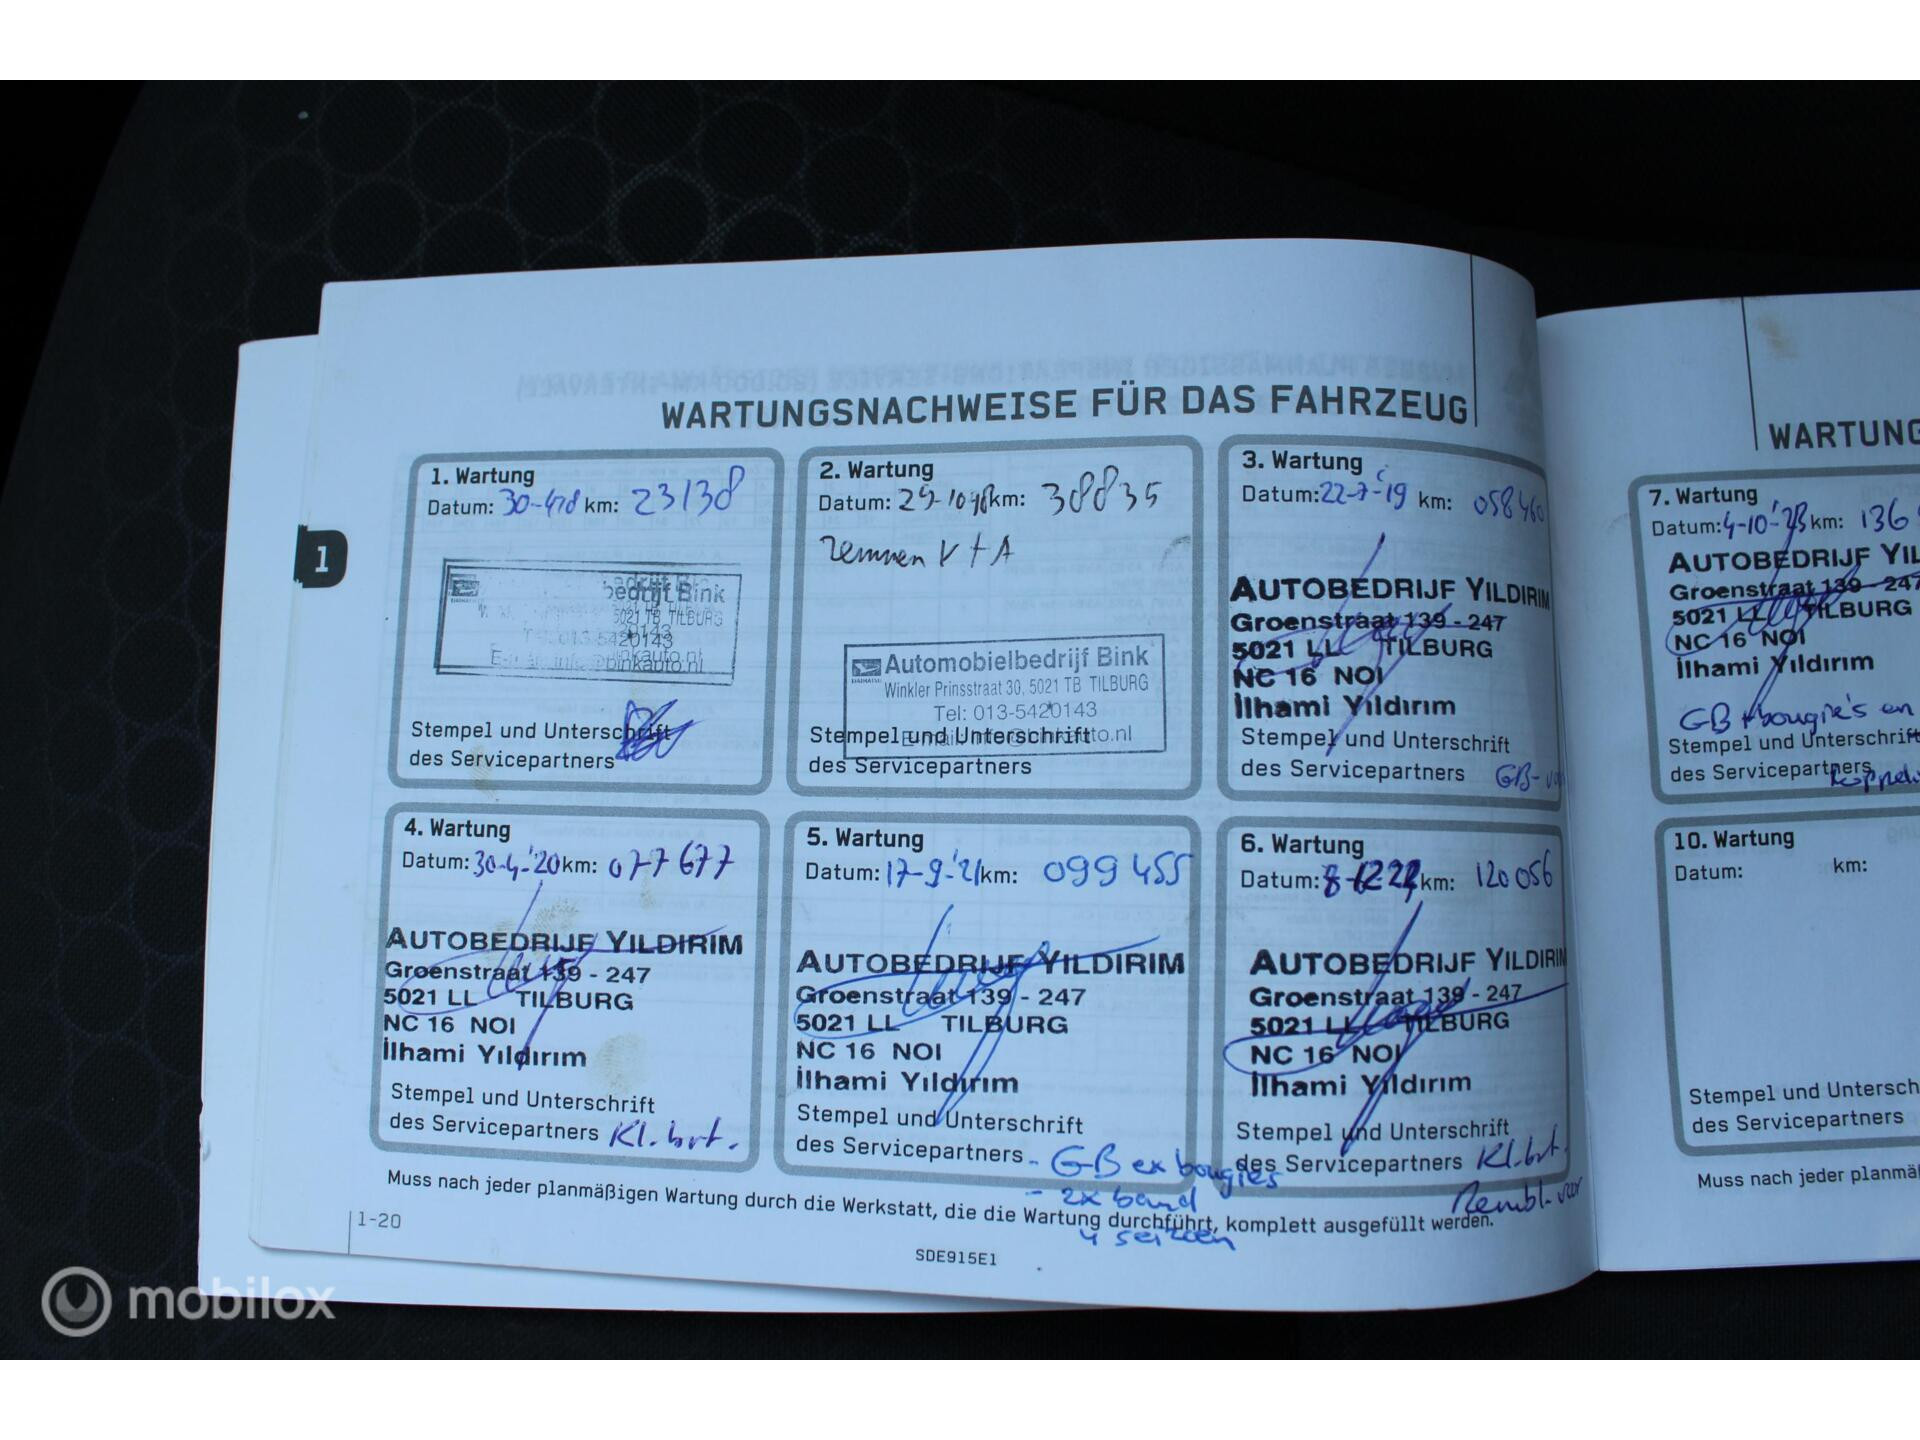 WARTUNGSNACHWEISE FÜR DAS FAHRZEUG
1
1. Wartung
Datum: 30-4-18 km: 23138
bedrijf Bink
5021 TB TILBURG
5420143
Stempel und Unterschrift
des Servicepartners
2. Wartung
Datum: km: 38835
remmen V + A
Automobielbedrijf Bink
DAIHATSU
Winkler Prinsstraat 30, 5021 TB TILBURG
Tel: 013-5420143
E-mail: info@binkauto.nl
Stempel und Unterschrift
des Servicepartners
3. Wartung
Datum: 22-7-'19 km: 058460
AUTOBEDRIJF YILDIRIM
Groenstraat 139 - 247
5021 LL TILBURG
NC 16 NOI
İlhami Yıldırım
Stempel und Unterschrift
des Servicepartners GB-
4. Wartung
Datum: 30-4-'20 km: 077677
AUTOBEDRIJF YILDIRIM
Groenstraat 139 - 247
5021 LL TILBURG
NC 16 NOI
İlhami Yıldırım
Stempel und Unterschrift
des Servicepartners Kl.brt.
5. Wartung
Datum: 17-9-'21 km: 099455
AUTOBEDRIJF YILDIRIM
Groenstraat 139 - 247
5021 LL TILBURG
NC 16 NOI
İlhami Yıldırım
Stempel und Unterschrift
des Servicepartners - GB ex bougies
- 2x band
4 seizoen
6. Wartung
Datum: km: 120056
AUTOBEDRIJF YILDIRIM
Groenstraat 139 - 247
5021 LL TILBURG
NC 16 NOI
İlhami Yıldırım
Stempel und Unterschrift
des Servicepartners Kl.brt.
Rembl. voor
Muss nach jeder planmäßigen Wartung durch die Werkstatt, die die Wartung durchführt, komplett ausgefüllt werden.
1-20
SDE915E1
WARTUNG
7. Wartung
Datum: 4-10-'23 km: 136
AUTOBEDRIJF YIL
Groenstraat 139 - 247
5021 LL TILBURG
NC 16 NOI
İlhami Yıldırım
GB + bougie's en
Stempel und Unterschrift
des Servicepartners
10. Wartung
Datum: km:
Stempel und Untersch
des Servicepartners
Muss nach jeder planmä
mobilox